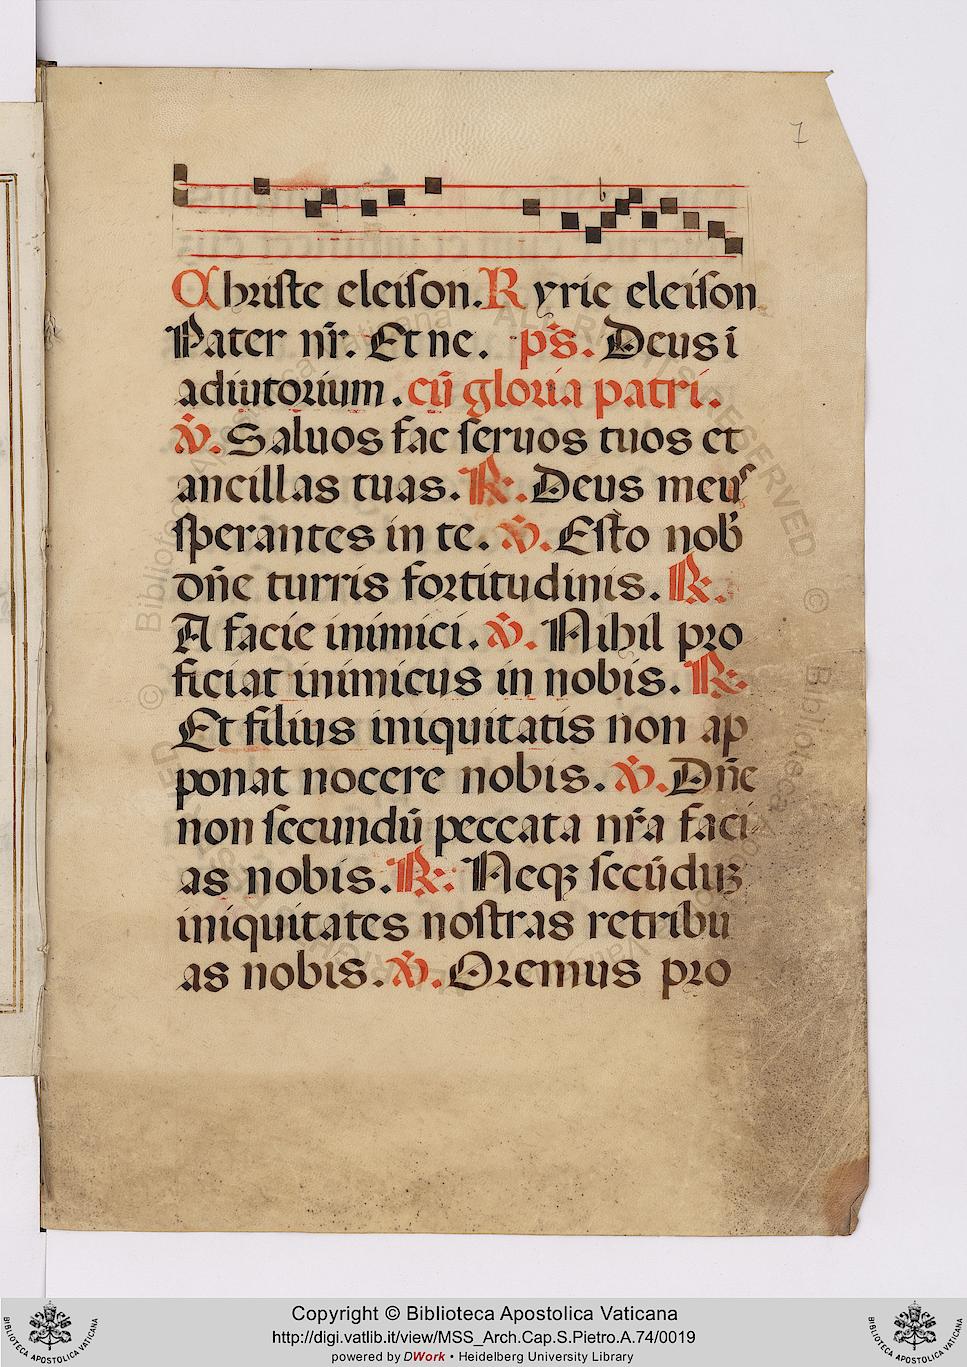 7
Christe eleison. Kyrie eleison
Pater nr̄. Et ne. ps̄. Deus ī
adiutorium. cū gloria patri.
℣. Saluos fac seruos tuos et
ancillas tuas. ℟. Deus meus
sperantes in te. ℣. Esto nob̄
dn̄e turris fortitudinis. ℟.
A facie inimici. ℣. Nihil pro
ficiat inimicus in nobis. ℟.
Et filius iniquitatis non ap
ponat nocere nobis. ℣. Dn̄e
non secundū peccata nr̄a faci
as nobis. ℟. Neqꝫ secūduꝫ
iniquitates nostras retribu
as nobis. ℣. Oremus pro
Copyright © Biblioteca Apostolica Vaticana
http://digi.vatlib.it/view/MSS_Arch.Cap.S.Pietro.A.74/0019
powered by DWork • Heidelberg University Library
BIBLIOTECA APOSTOLICA VATICANA
BIBLIOTECA APOSTOLICA VATICANA